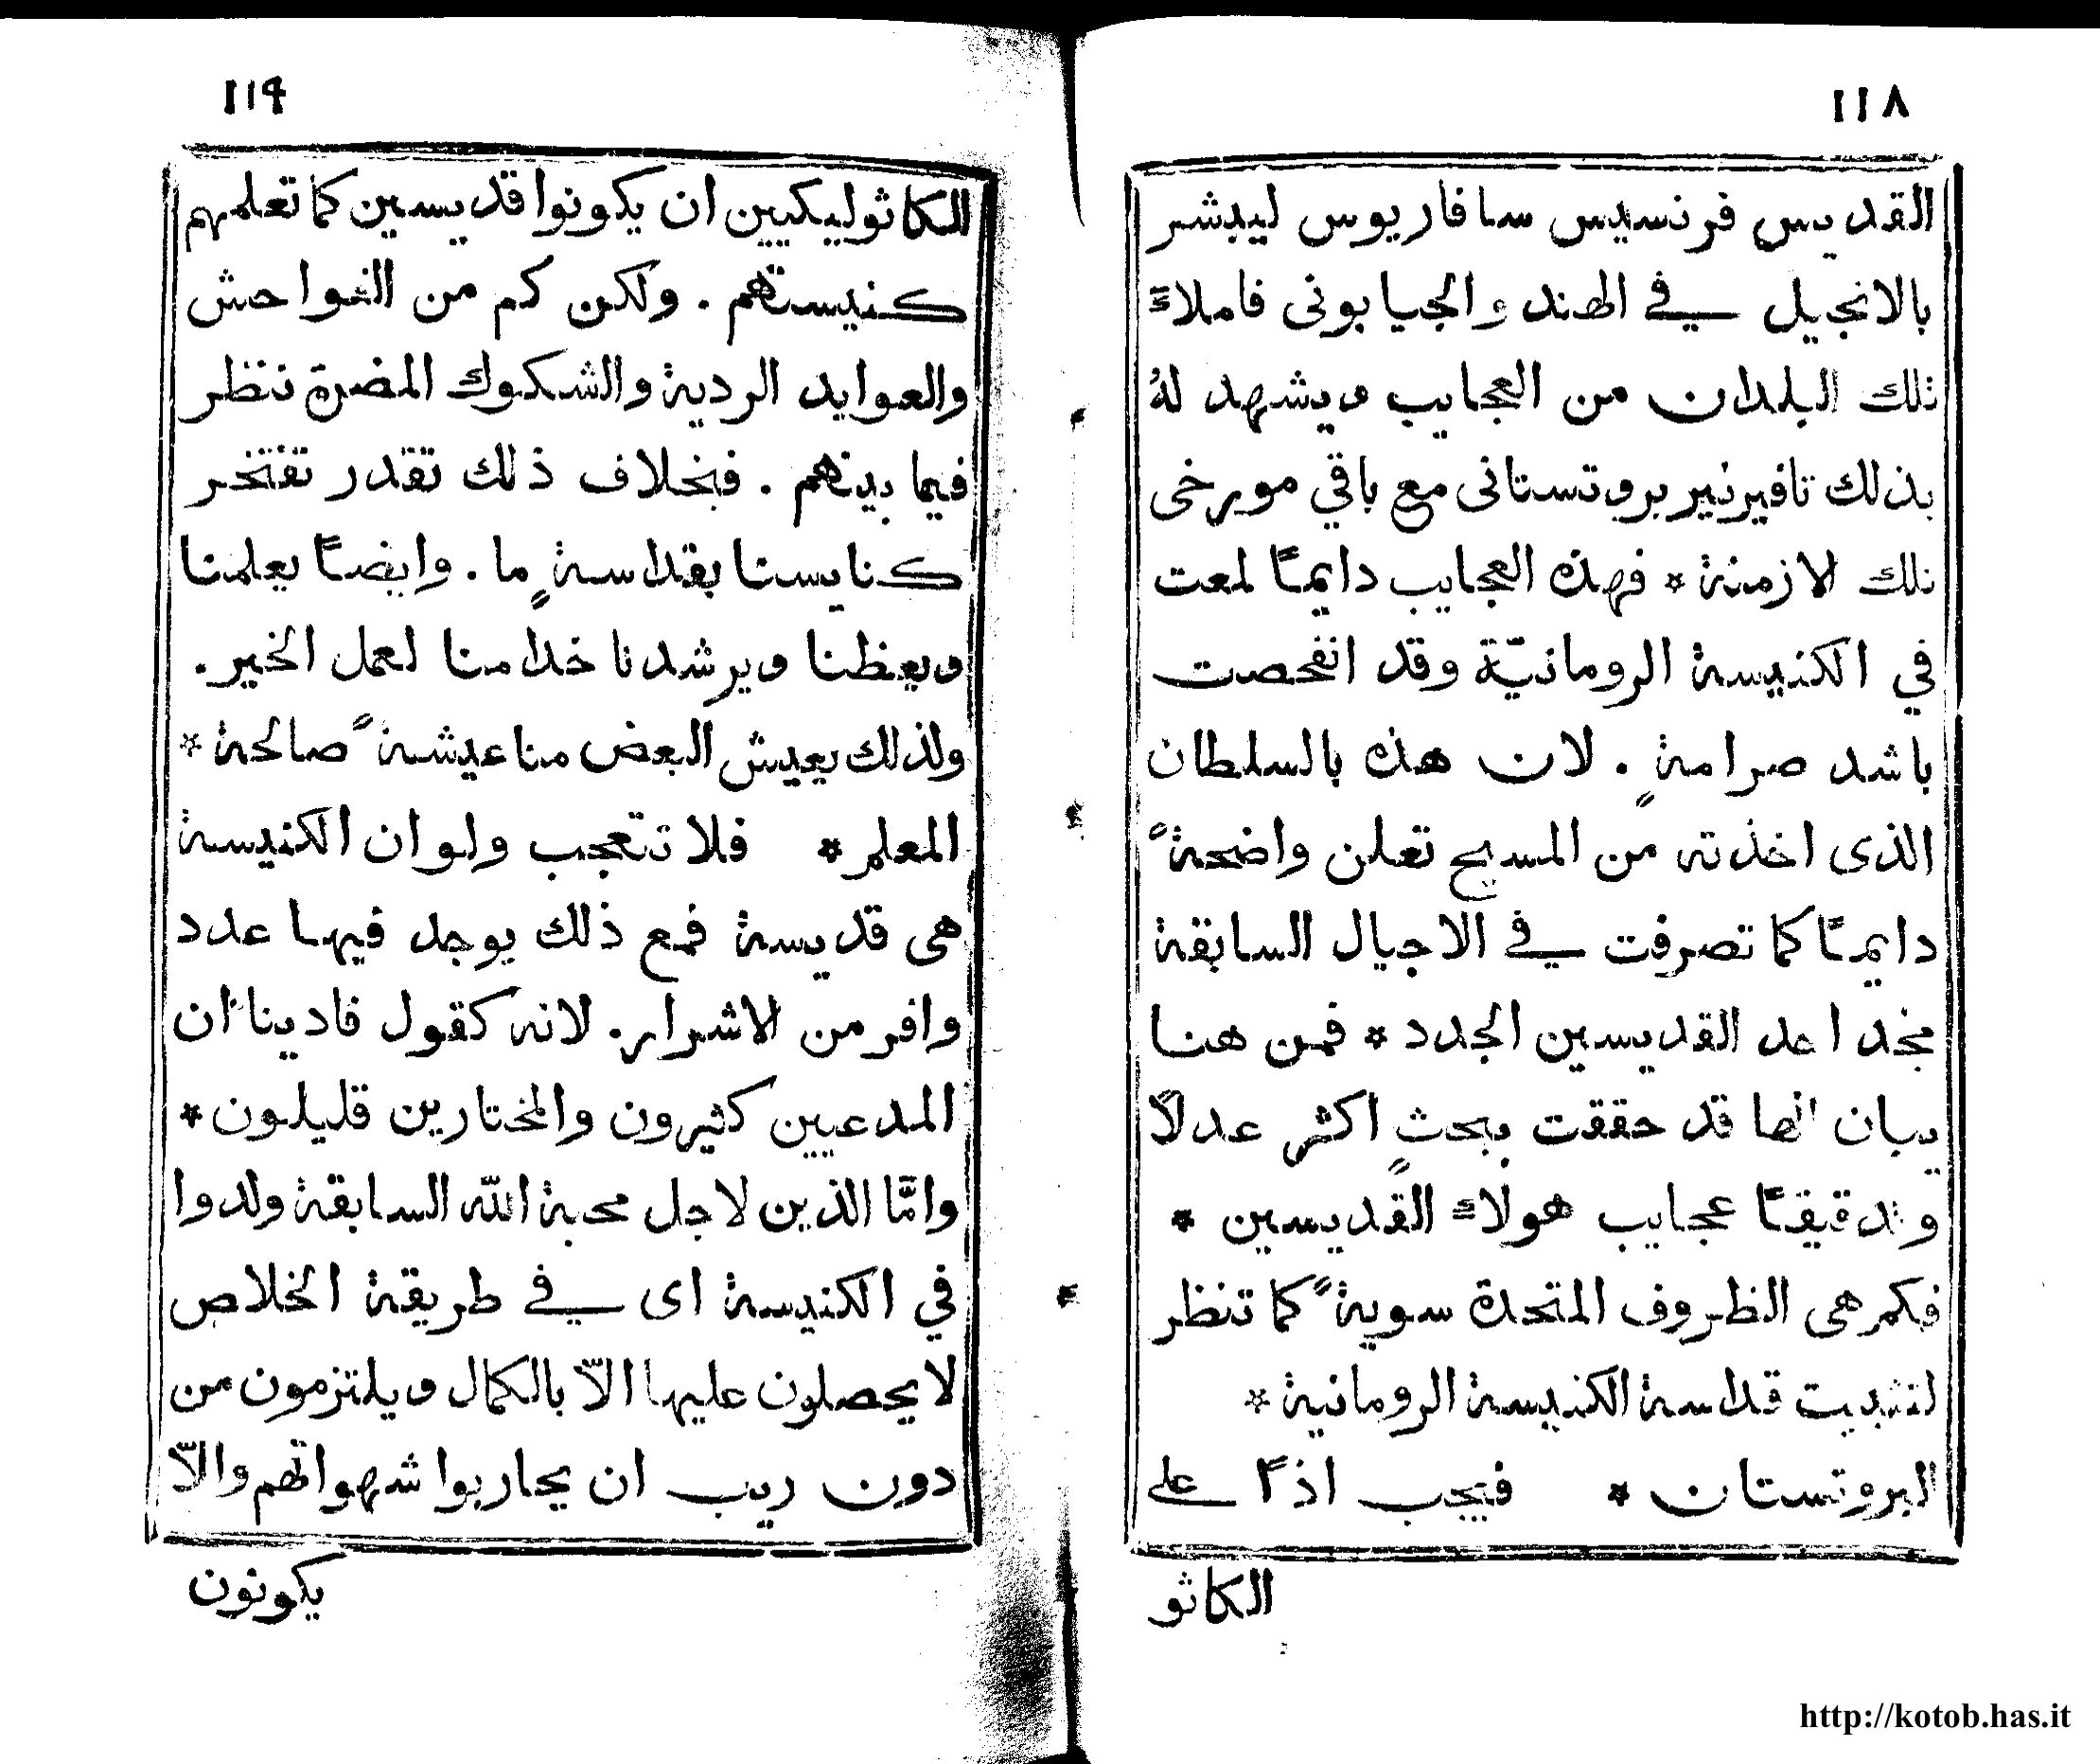 ١١٨
القديس فرنسيس سافاريوس ليبشر
بالانجيل في الهند والجيابونى فاملاءً
تلك البلدان من العجايب ويشهد لهُ
بذلك تافيرنير بروتستانى مع باقي مورخى
تلك الازمنة * فهذه العجايب دايمـًا لمعت
في الكنيسة الرومانيّة وقد انفحصت
باشد صرامةٍ . لان هذه بالسلطان
الذى اخذته من المسيح تعلن واضحةً
دايمـًا كما تصرفت في الاجيال السابقة
مخد احد القديسين الجدد * فمن هنا
يبان انها قد حققت ببحثٍ اكثر عدلاً
وتدقيقـًا عجايب هولاءً القديسين *
فكم هى الظروف المتحدة سويةً كما تنظر
لتثبيت قداسة الكنيسة الرومانية *
البروتستان * فيجب اذًا على
الكاثو
١١٩
الكاثوليكيين ان يكونوا قديسين كما تعلمهم
كنيستهم . ولكن كم من الفواحش
والعوايد الردية والشكوك المضرة ننظر
فيما بينهم . فبخلاف ذلك تقدر تفتخر
كنايسنا بقداسةٍ ما . وايضـًا يعلمنا
ويعظنا ويرشدنا خدامنا لعمل الخير .
ولذلك يعيش البعض منا عيشةً صالحة *
المعلم * فلا تتعجب ولو ان الكنيسة
هى قديسة فمع ذلك يوجد فيها عدد
وافر من الاشرار . لانه كقول فادينا ان
المدعيين كثيرون والمختارين قليلون *
وامّا الذين لاجل محبة الله السابقة ولدوا
في الكنيسة اى في طريقة الخلاص
لا يحصلون عليها الاّ بالكمال ويلتزمون من
دون ريب ان يحاربوا شهواتهم والاّ
يكونون
http://kotob.has.it